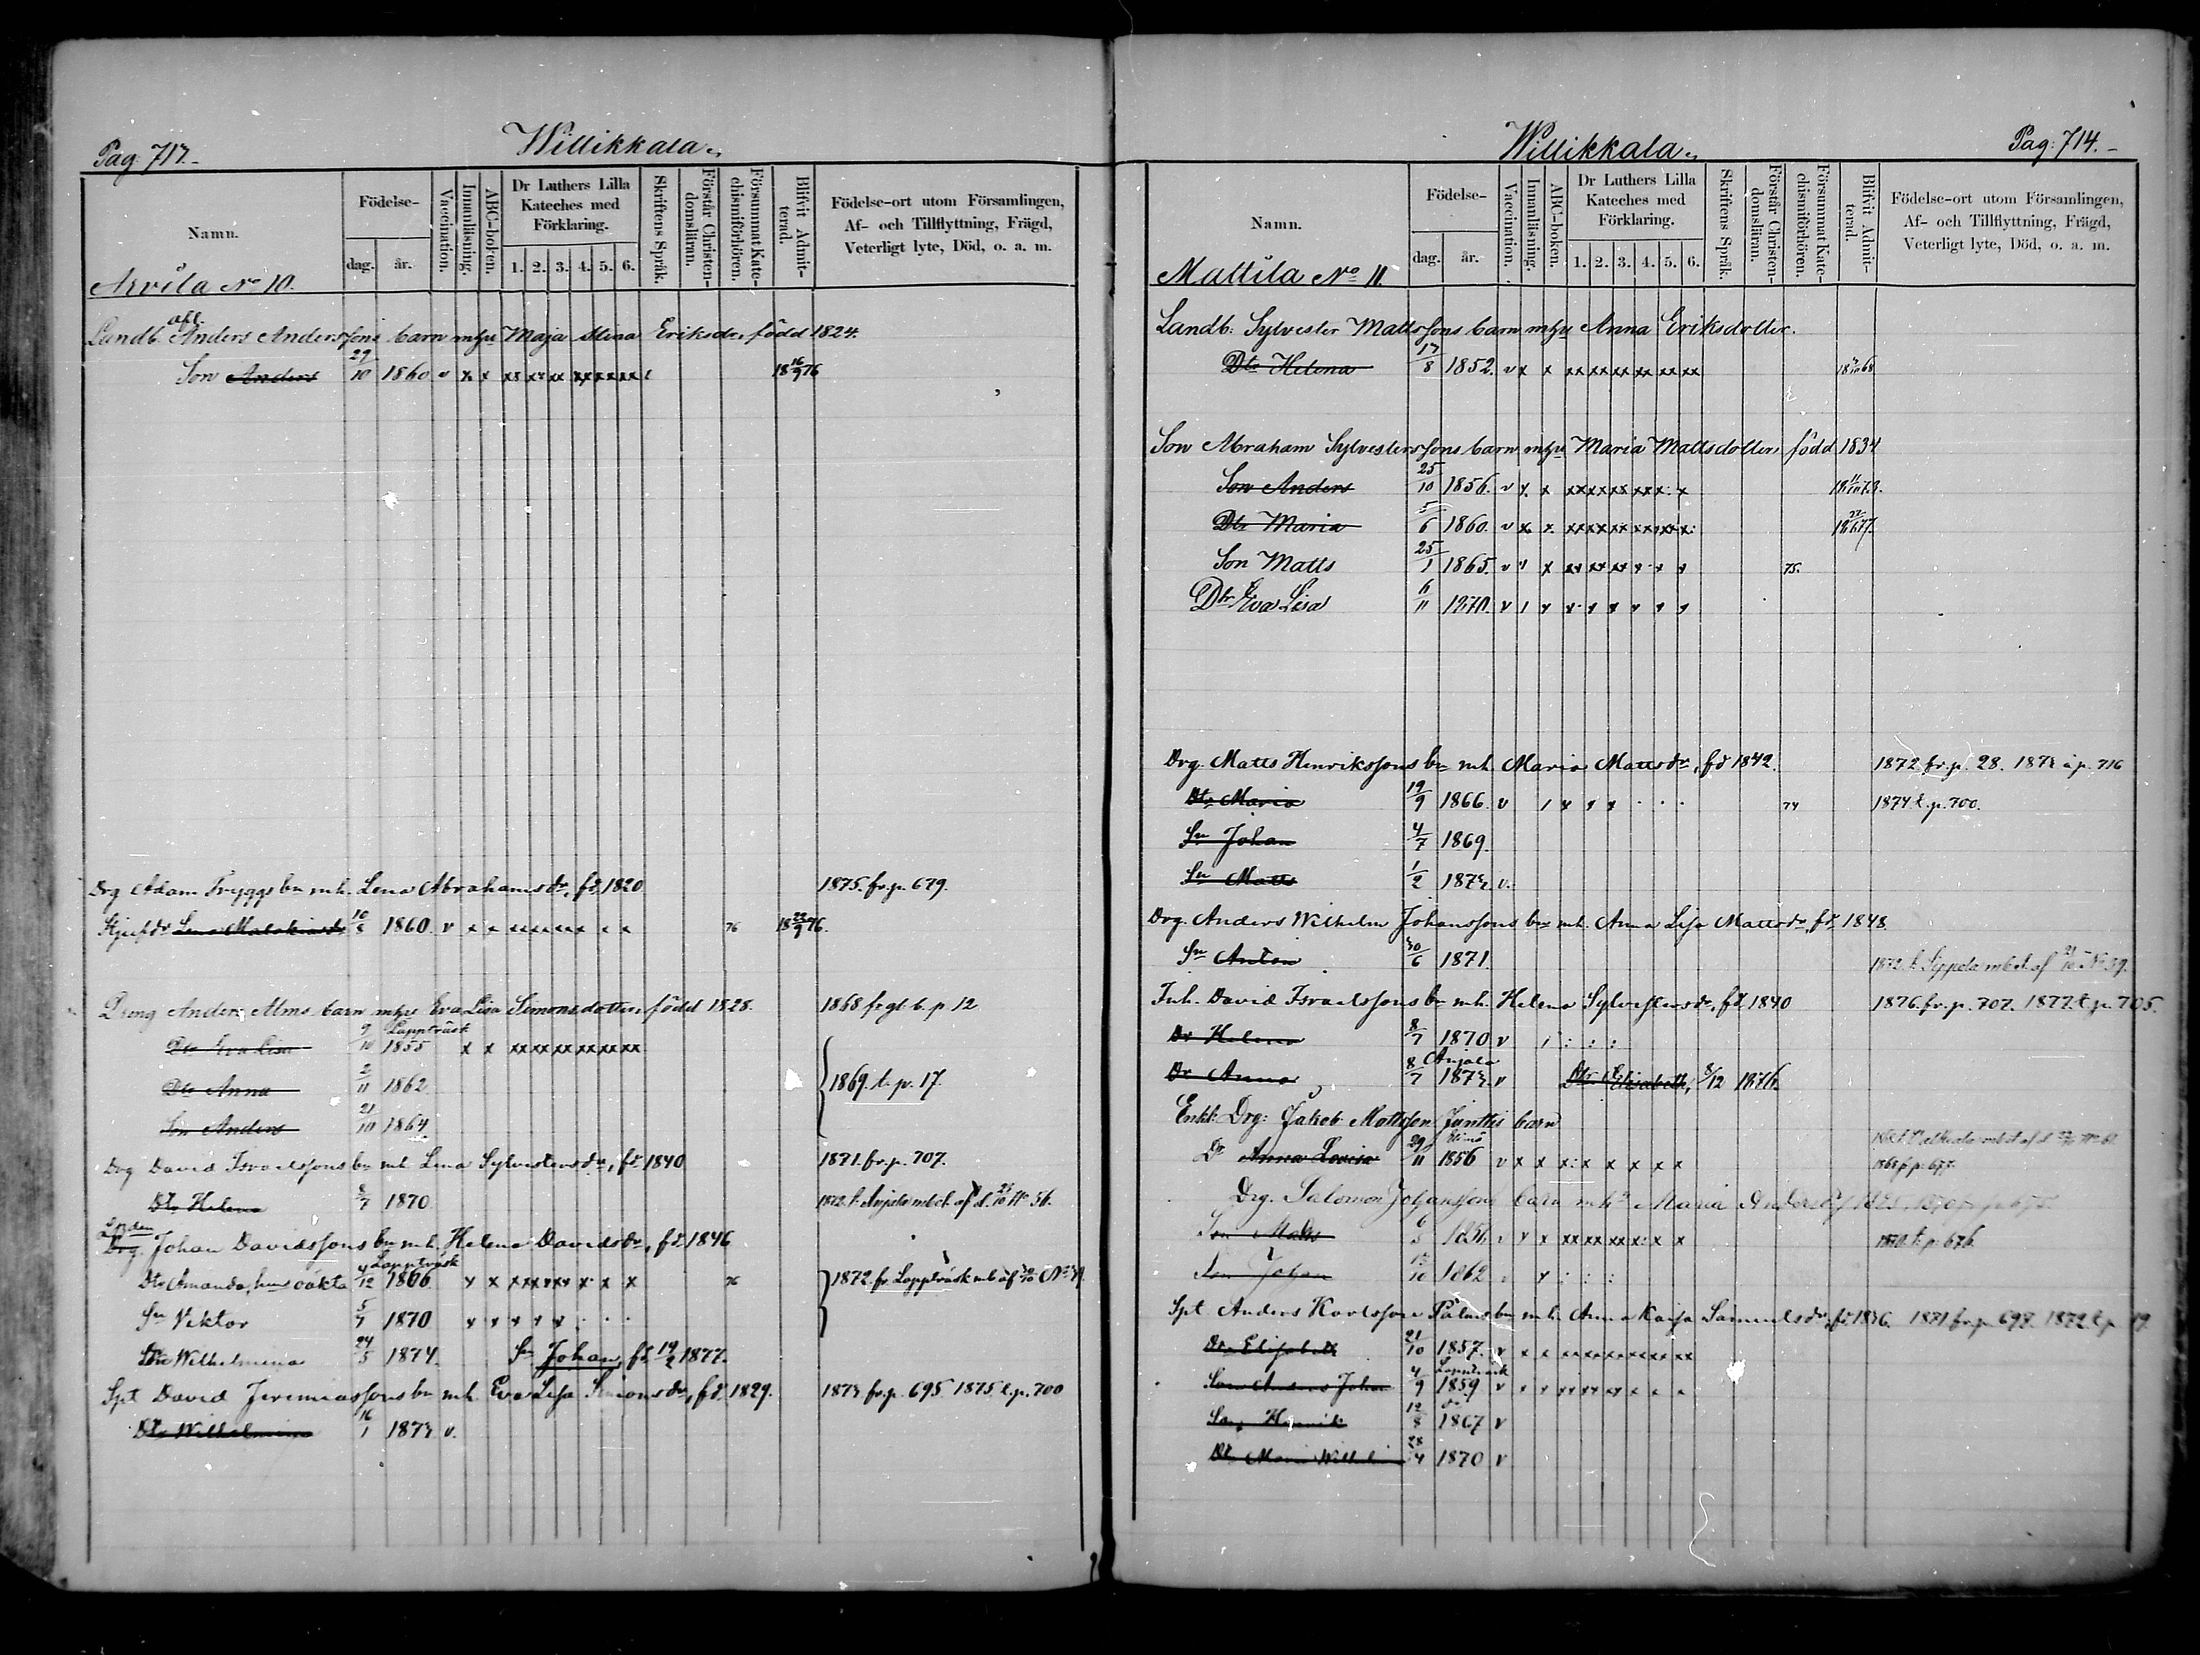 Pag: 713.
Willikkala.
Namn.
Födelse-
dag.
år.
Vaccination.
Innanläsning.
ABC-boken.
Dr Luthers Lilla Kateches med Förklaring.
1. 2. 3. 4. 5. 6.
Skriftens Språk.
Förstår Christendomsläran.
Försummat Katechismiförhören.
Blifvit Admitterad.
Födelse-ort utom Församlingen,
Af- och Tillflyttning, Frägd,
Veterligt lyte, Död, o. a. m.
Arvila No 10.
Landb. afl. Anders Anderssons barn mhu Maja Stina Eriksdr född 1824.
Son Anders 29/10 1860 v x x xx xx xx xx xx xx 18 16/9 76
Drg Adam Tryggs bn mh. Lena Abrahamsdr, fd. 1820 1875. fr. p. 679.
Stjufdr Lena 10/8 1860 v x x 76 18 22/9 76.
Dreng Anders Alms barn mhu Eva Lisa Simonsdotter född 1828. 1868 p 12
Dtr Eva Lisa 9/10 1855 Lappträsk x x xx xx xx xx xx xx
Dtr Anna 2/11 1862 1869. t. p. 17.
Son Anders 21/10 1864
Drg David Israelssons bn mh Lena Sylvestersdr, fd. 1840 1871. fr. p. 707.
Dtr Helena 8/7 1870 1872. t. Anjala mbet. af d. 25/10 No 56.
Drg. Johan Davidssons bn mh. Helena Davidsdr, fd. 1846
Dtr Amanda, hus oäkta 4/12 1866 Lappträsk 76 1872 fr. Lappträsk
Sn Viktor 5/7 1870
Dtr Wilhelmina 24/5 1874. Sn Johan, fd. 19/2 1877.
Spt David Jeremiassons bn mh. Eva Lisa Simonsdr, fd. 1829. 1873 fr. p. 695 1875 t. p. 700
Dtr Wilhelmina 16/1 1873 v.
Willikkala.
Pag: 714.
Namn.
Födelse-
dag.
år.
Vaccination.
Innanläsning.
ABC-boken.
Dr Luthers Lilla Kateches med Förklaring.
1. 2. 3. 4. 5. 6.
Skriftens Språk.
Förstår Christendomsläran.
Försummat Katechismiförhören.
Blifvit Admitterad.
Födelse-ort utom Församlingen,
Af- och Tillflyttning, Frägd,
Veterligt lyte, Död, o. a. m.
Mattila No 11.
Landb: Sylvester Mattssons barn mhu Anna Eriksdotter.
Dtr Helena 17/8 1852. v x x xx xx xx xx xx xx
Son Abraham Sylvesterssons barn mhu Maria Mattsdotter, född 1834
Son Anders 25/10 1856. v x x
Dtr Maria 5/6 1860. v x x
Son Matts 25/1 1865. v v x 75.
Dtr Eva Lisa 6/11 1870. v
Drg. Matts Henrikssons bn mh. Maria Mattsdr, fd 1842. 1872 fr. p. 28. 1873 å p. 716
Dtr Maria 19/9 1866. v 74 1874 t. p. 700.
Sn Johan 4/7 1869.
Sn Matts 1/2 1873 v.
Drg. Anders Wilhelm Johanssons bn mh. Anna Lisa Mattsdr, fd. 1848.
Sn Anton 30/6 1871. 1872. t. Sippola mbet. af No 39.
Inh. David Israelssons bn mh. Helena Sylvestersdr, fd. 1840 1876. fr. p. 707. 1877 t. p. 705.
Dr Helena 8/7 1870 v
Dr Anna 8/7 1873. v Anjala Dtr Elisabeth, 8/12 1876.
Enkl. Drg: Jakob Mattsson Junttis barn
Dr Anna Lovisa 29/11 1856 v x x x x x x x x 1868 p. 677.
Drg. Salomon Johanssons barn mhu Maria
Son Matts 6/5 1856. 1870 t. p. 676.
Son Johan 1862
Spt Anders Karlsson Palms bn mh. Anna Kaisa Samuelsdr, fd. 1836. 1871 fr. p. 698. 1872 t. p. 19.
Dtr Elisabeth 21/10 1857. v x x
Son Anders Johan 4/9 1859 Lappträsk v
Son Henrik 12/8 1867 do v
Dtr Maria Wilhelmina 28/4 1870 v